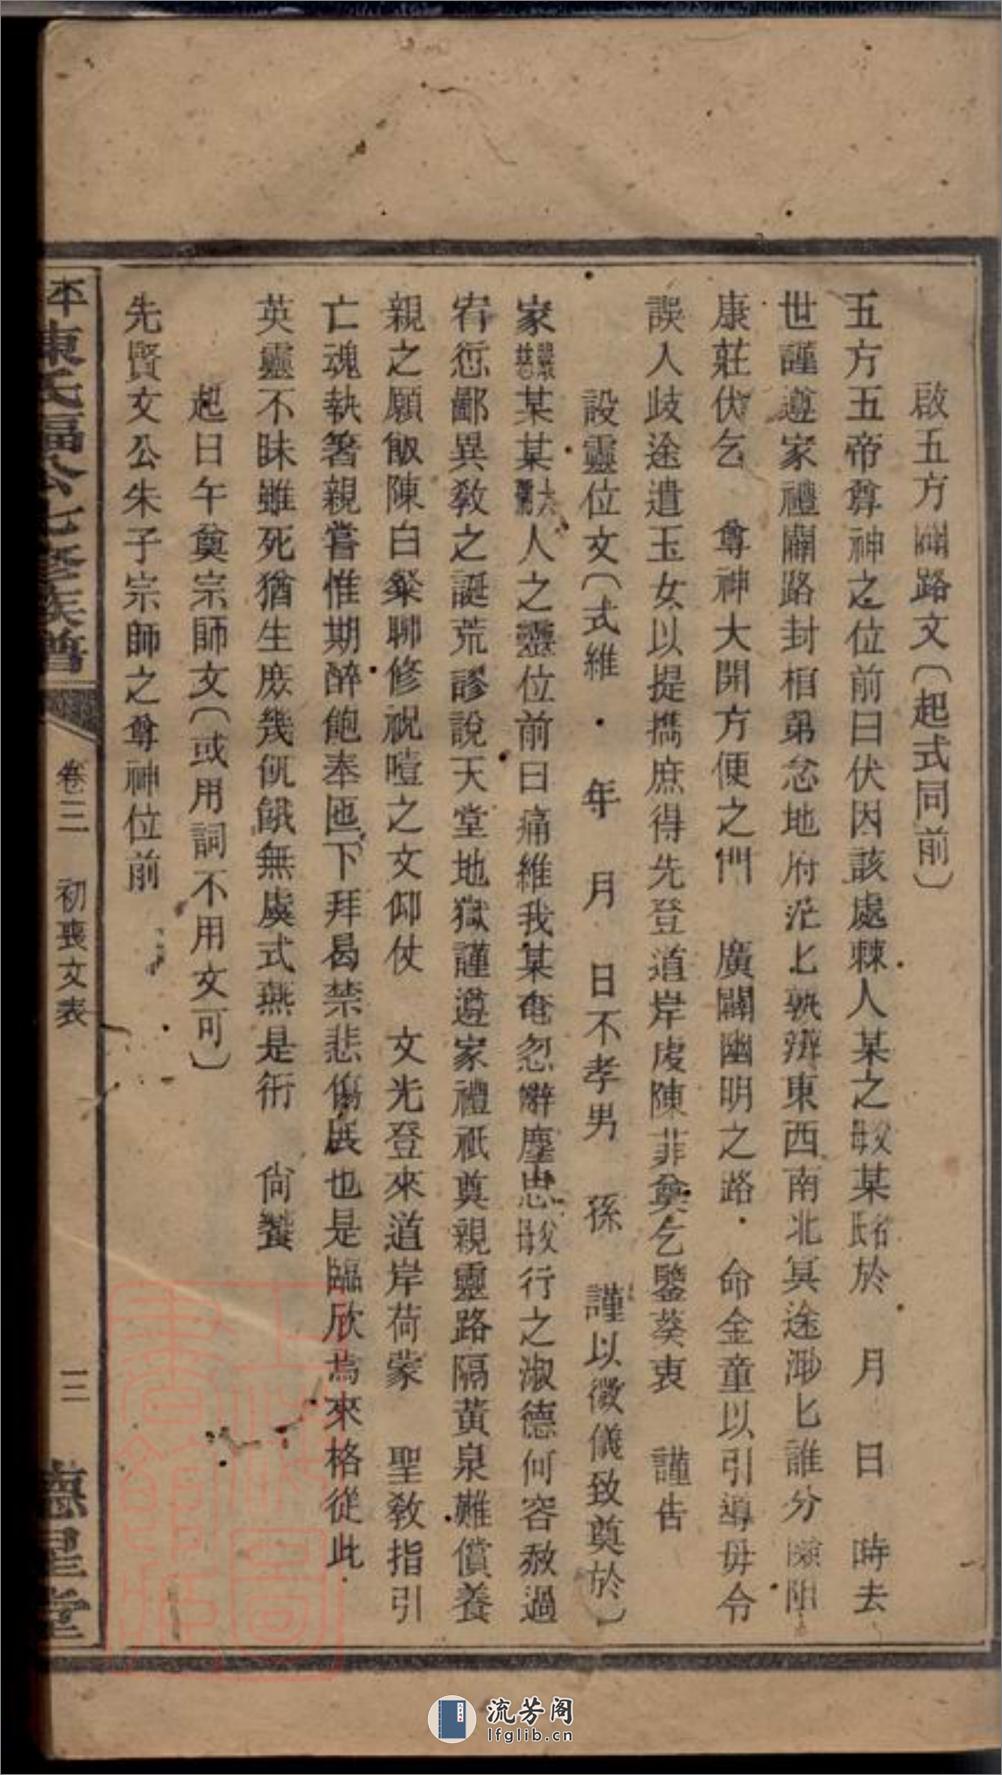 啟五方關路文(起式同前)
五方五帝尊神之位前曰伏因該處棘人某之父母某名氏於　月　日　時去
世謹遵家禮關路封棺弟念地府茫匕孰辨東西南北冥途渺匕誰分險阻
康莊伏乞　尊神大開方便之門　廣闢幽明之路．命金童以引導毋令
誤人歧途遣玉女以提攜庶得先登道岸虔陳菲奠乞鑒葵衷　謹告
設靈位文(式維．年　月　日不孝男　孫　謹以微儀致奠於)
家某某大人之靈位前曰痛維我某奄忽辭塵思父母行之淑德何容赦過
宥愆鄙異教之誕荒謬說天堂地獄謹遵家禮祇奠親靈路隔黃泉難償養
親之願飯陳白粲聊修祝噎之文仰仗　文光登來道岸荷蒙　聖教指引
亡魂執箸親嘗惟期醉飽奉匜下拜曷禁悲傷展也是臨欣為來格從此
英靈不昧雖死猶生庶幾飢餓無虞式燕是衎　尚饗
起日午奠宗師文(或用詞不用文可)
先賢文公朱子宗師之尊神位前
平陳氏福公七修族譜
卷三　初喪文表
三
德星堂
流芳阁
lfglib.cn